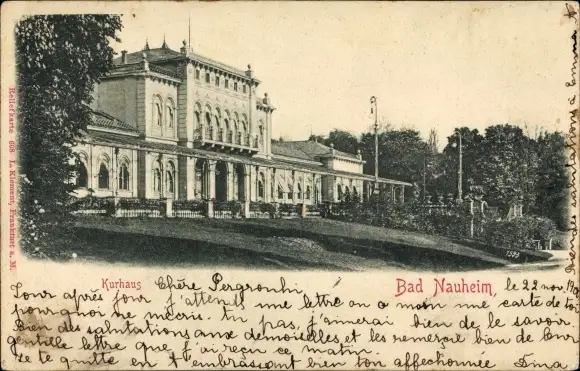 Kurhaus
Bad Nauheim
Chère
le 22 nov. 190
Jour après jour j'attends une lettre ou a moin une carte de toi
pourquoi ne mecris. tu pas, j'aimerai bien de le savoir.
Bien des salutations aux demoiselles et les remercie bien de leur
gentille lettre que j'ai reçu ce matin.
te quitte en t'embrassant bien ton affechionnée Dina
Reliefkarte 608 L. Klement, Frankfurt a. M.
1399